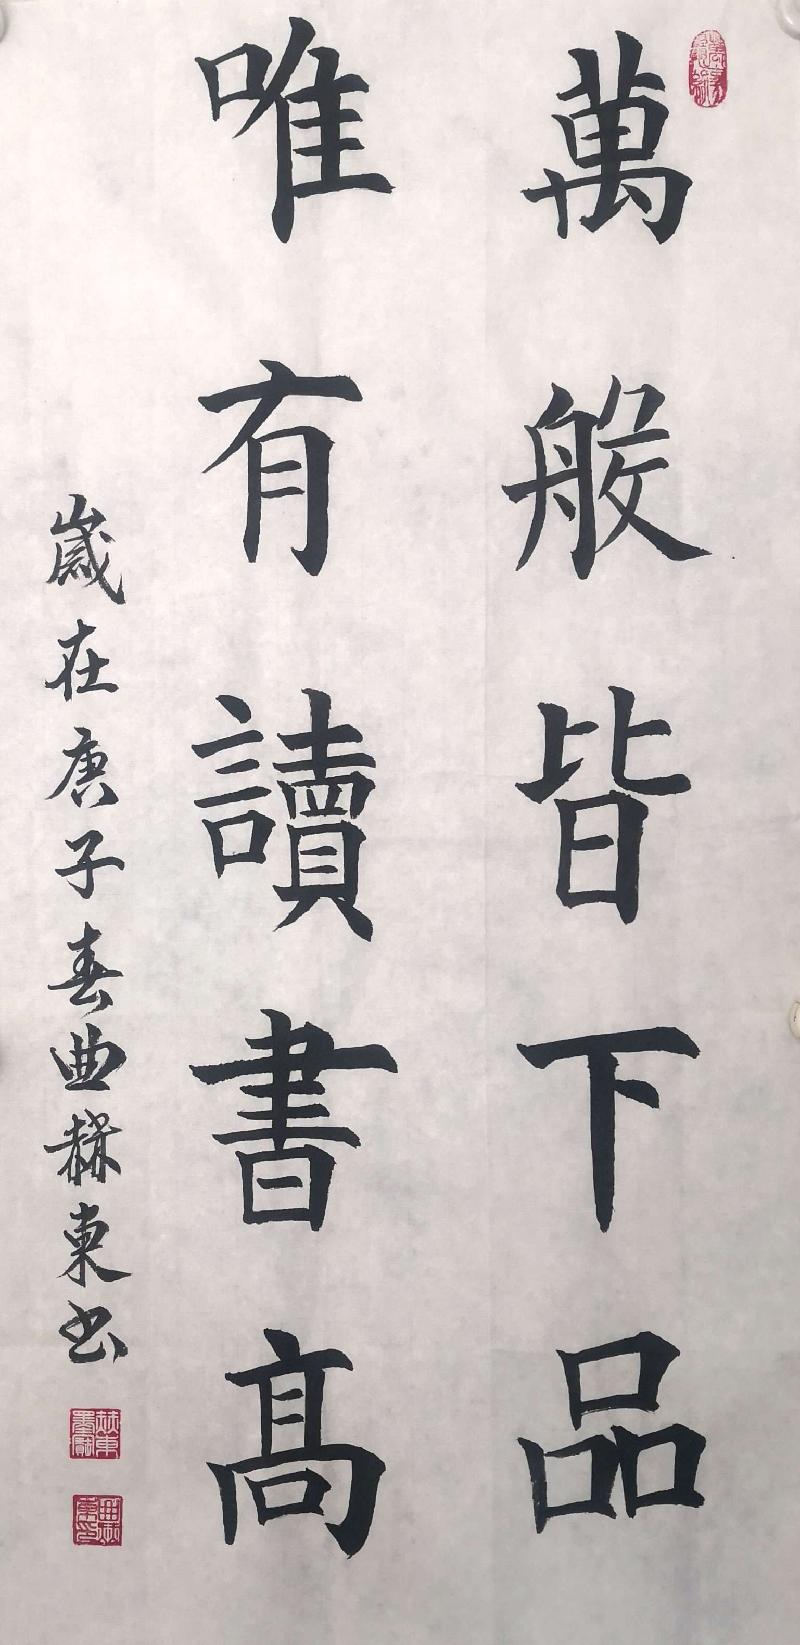 萬般皆下品
唯有讀書高
歲在庚子春曲赫東书